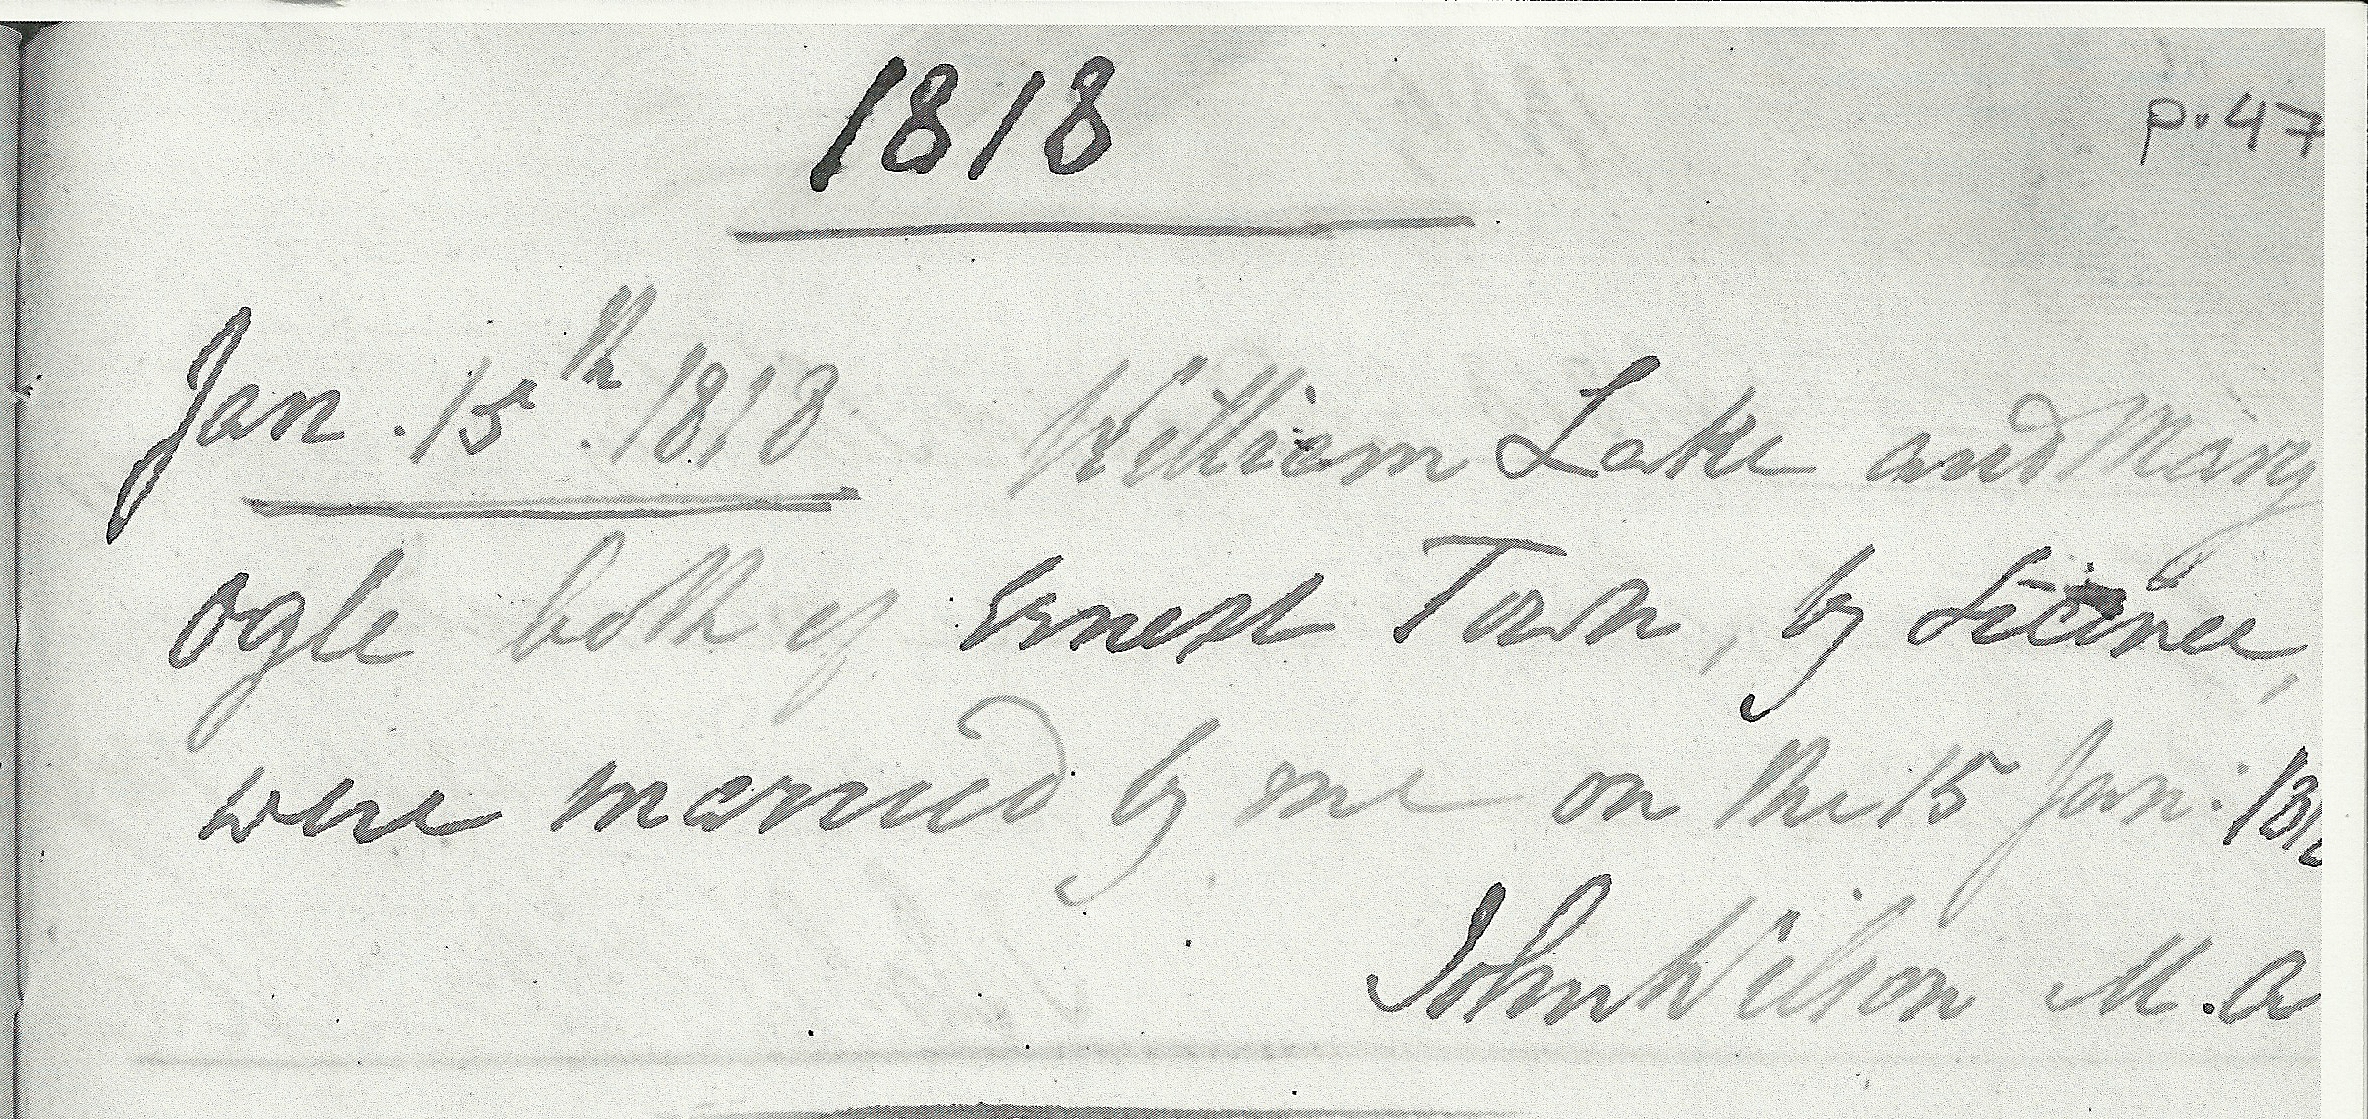 1818
p. 47
Jan. 15th. 1818 William Lake and Mary
Ogle both of Ernest Town, by Licence,
were married by me on the 15 Jan: 1818
John Wilson M.A